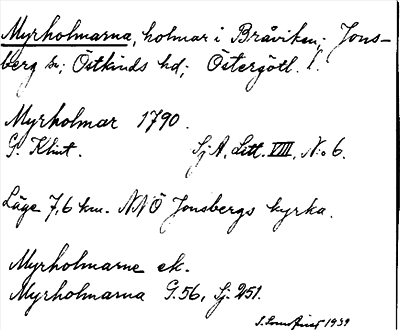 Myrholmarna, holmar i Bråviken; Jons-
berg sn; Östkinds hd; Östergötl. l.
Myrholmar 1790.
G. Klint. Sj A, Litt. VIII, N:o 6.
Läge 7,6 km. NNÖ Jonsbergs kyrka.
Myrholmarne ek.
Myrholmarna G.56, Sj. 251.
1939